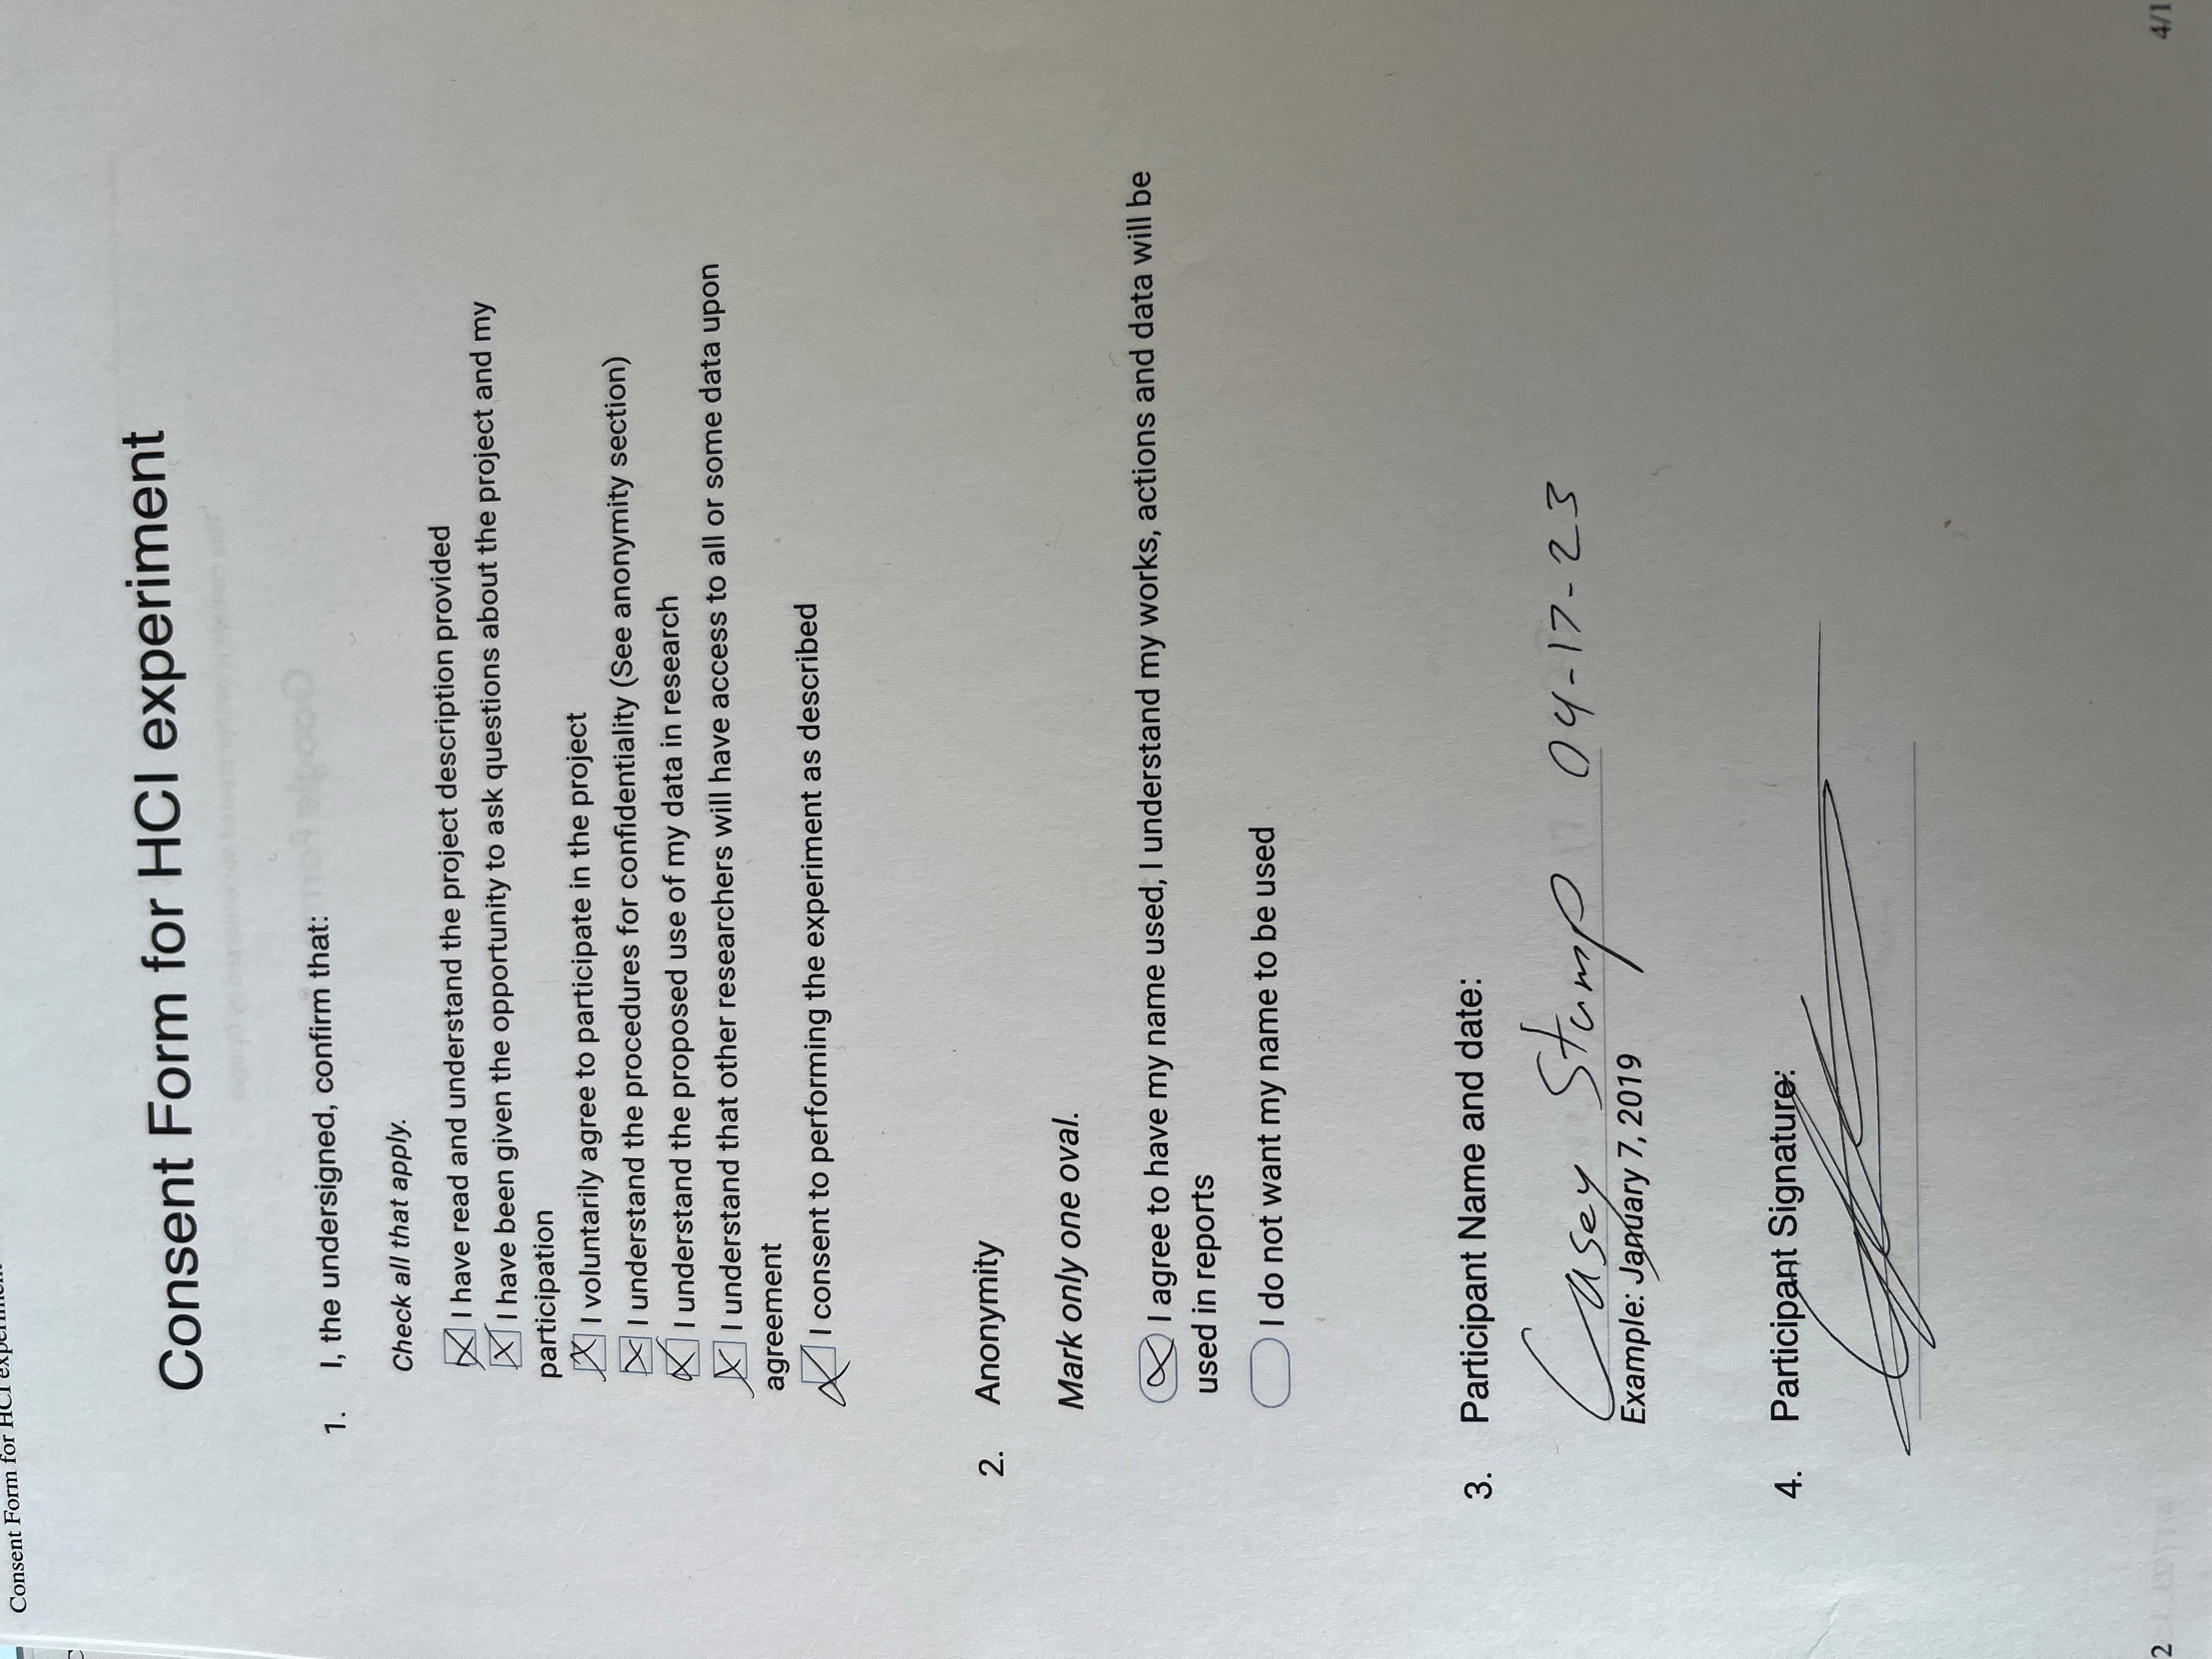 Consent Form for HCI experiment
Consent Form for HCI experiment
1. I, the undersigned, confirm that:
Check all that apply.
I have read and understand the project description provided
I have been given the opportunity to ask questions about the project and my
participation
I voluntarily agree to participate in the project
I understand the procedures for confidentiality (See anonymity section)
I understand the proposed use of my data in research
I understand that other researchers will have access to all or some data upon
agreement
I consent to performing the experiment as described
2. Anonymity
Mark only one oval.
I agree to have my name used, I understand my works, actions and data will be
used in reports
I do not want my name to be used
3. Participant Name and date:
Casey Stump 04-17-23
Example: January 7, 2019
4. Participant Signature:
2 4/1